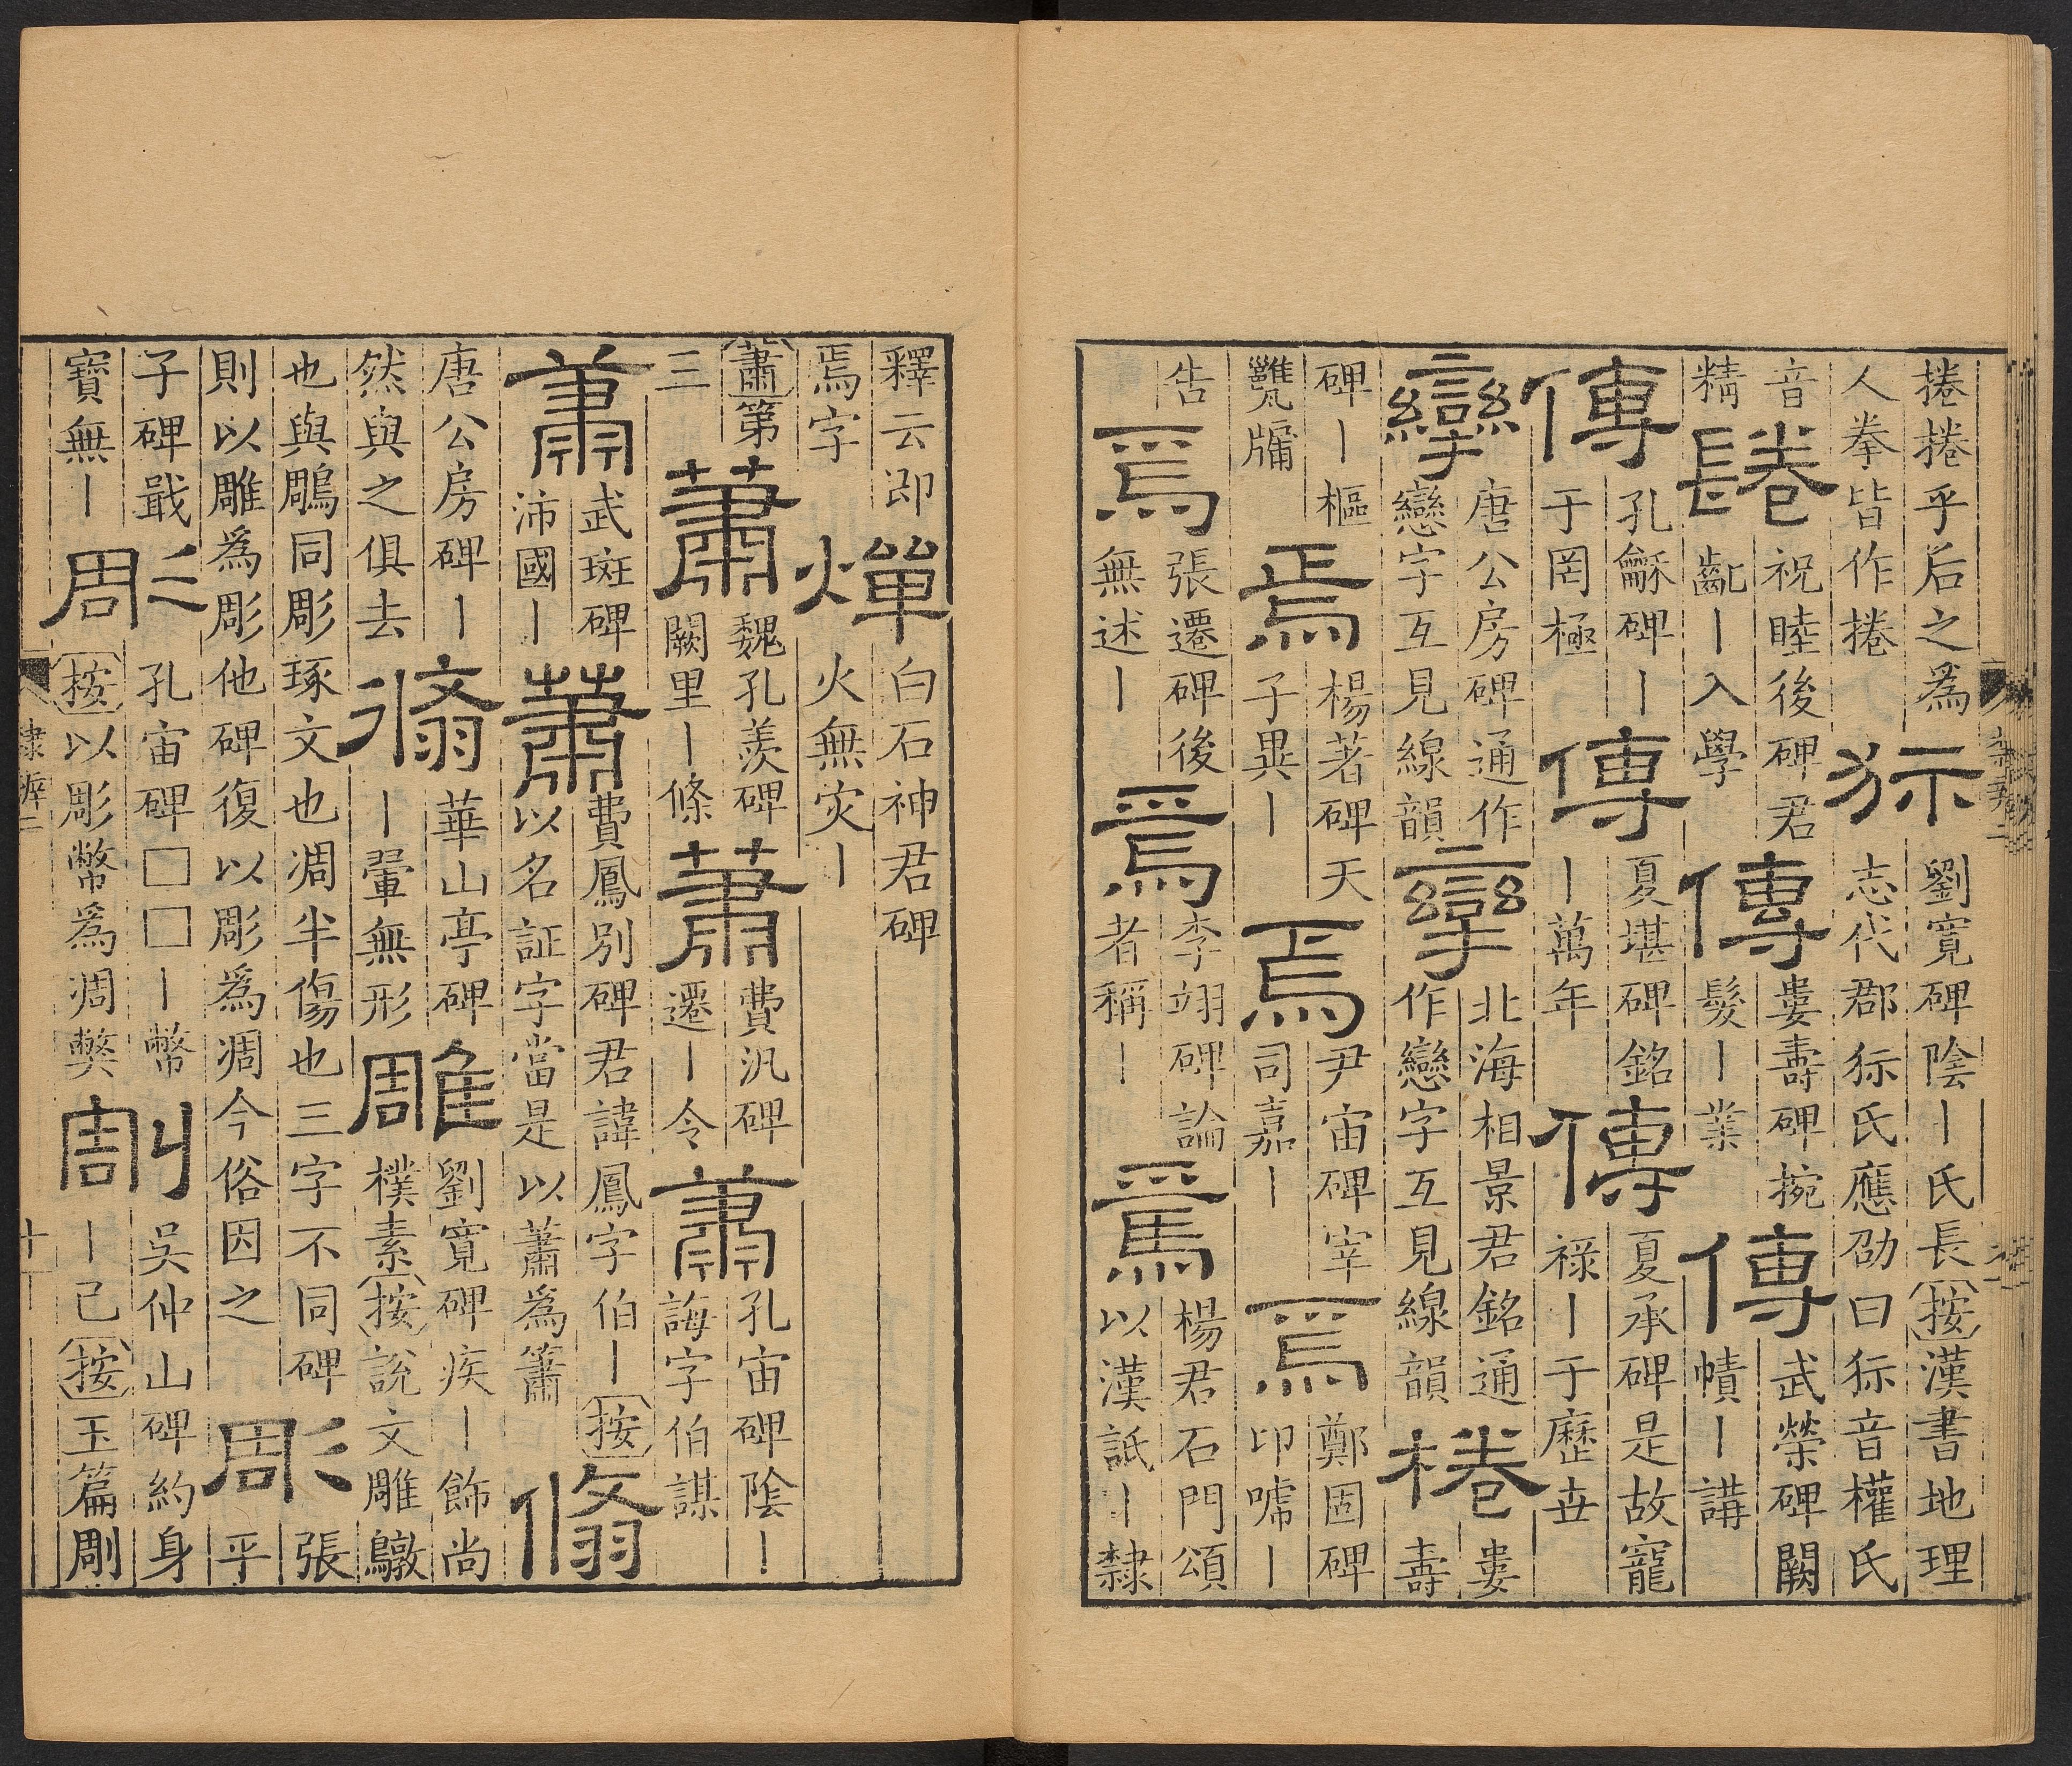 捲捲乎后之為人拳皆作捲 狋 劉寬碑陰丨氏長按漢書地理志代郡狋氏應劭曰狋音權氏
音精 鬈 祝睦後碑君齔丨入學 傳 婁壽碑捥髮丨業 傳 武榮碑闕幘丨講
傳 孔龢碑丨于罔極 傳 夏堪碑銘丨萬年 傳 夏承碑是故寵祿丨于歷世
攣 唐公房碑通作戀字互見線韻 攣 北海相景君銘通作戀字互見線韻 棬 婁壽
碑丨樞甕牖 焉 楊著碑天子異丨 焉 尹宙碑宰司嘉丨 焉 鄭固碑卬嘑丨
告 焉 張遷碑後無述丨 焉 李翊碑論者稱丨 焉 楊君石門頌以漢詆丨隸
釋云即焉字 燀 白石神君碑火無灾丨
蕭第三 蕭 魏孔羨碑闕里丨條 蕭 費汎碑遷丨令 蕭 孔宙碑陰丨誨字伯謀
蕭 武斑碑沛國丨 蕭 費鳳別碑君諱鳳字伯丨按以名証字當是以蕭為簫 翛
唐公房碑丨然與之俱去 翛 華山亭碑丨翬無形 雕 劉寬碑疾丨飾尚樸素按說文雕鷻
也與鵰同彫琢文也凋半傷也三字不同碑則以雕為彫他碑復以彫為凋今俗因之 彫 張平
子碑戢寶無丨 彫 孔宙碑□□丨幣按以彫幣為凋弊 㓮 吳仲山碑約身丨己按玉篇㓮
隸辨二 十一